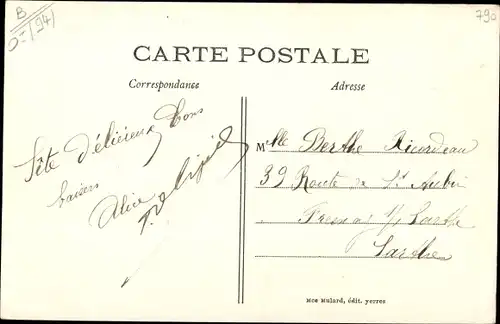 B
0-(94)
790
CARTE POSTALE
Correspondance
Adresse
Fête délicieux bons
baisers
Alice
Mlle Berthe Ricordeau
39 Route de St Aubin
Fresnay s/ Sarthe
Sarthe
Mce Mulard, édit. yerres